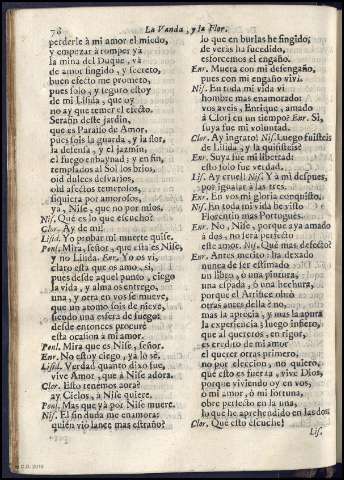 78 La Vanda, y la Flor.
perderle à mi amor el miedo,
y empezar à romper ya
la mina del Duque, và
de amor fingido, y secreto,
buen efecto me prometo,
pues solo, y seguro estoy
de mi Lisida, que oy
no ay que temer el efecto.
Serafin deste jardin,
que es Paraíso de Amor,
pues sois la guarda, y la flor,
la defensa, y el jazmin,
el fuego enbaynad; y en fin,
templados al Sol los brios,
oíd dulces desvarios,
oíd afectos temerosos,
siquiera por amorosos,
ya, Nise, que no por mios.
Nis. Què es lo que escucho?
Clor. Ay de mi!
Lisid. Yo probar mi muerte quise.
Ponl. Mira, señor, que esta es Nise,
y no Lisida. Enr. Yo os vi,
claro està que os amo, si;
pues desde aquel punto, ciego
la vida, y alma os entrego,
una, y otra en vos se mueve,
que un atomo sois de nieve,
siendo una esfera de fuego:
desde entonces procurè
esta ocasion a mi amor.
Ponl. Mira que es Nise, señor.
Enr. No estoy ciego, ya lo sè.
Lisid. Verdad quanto dixo fue,
vive Amor, que à Nise adora.
Clor. Esto tenemos aora?
ay Cielos, à Nise quiere.
Ponl. Mas que ya por Nise muere.
Nis. El sin duda me enamora:
quien viò lance mas estraño?
lo que en burlas he fingido,
de veras ha sucedido,
estorcemos el engaño.
Enr. Muera con mi desengaño,
pues con mi engaño vivì.
Nis. En toda mi vida vi
hombre mas enamorado:
vos aveis, Enrique, amado
à Clori en un tiempo? Enr. Si,
suya fue mi voluntad.
Clor. Ay ingrato! Nis. Luego fuisteis
de Lisida, y la quisisteis?
Enr. Suya fue mi libertad:
esso solo fue verdad.
Lis. Ay cruel! Nis. Y à mi despues,
por igualar à las tres.
Enr. En vos mi gloria conquisto.
Nis. En toda mi vida he visto
Florentin mas Portugues.
Enr. No, Nise, porque aya amado
à dos, no serà perfecto
este amor. Nis. Què mas defecto?
Enr. Antes merito: ha dexado
nunca de ser estimado
un libro, ò una pintura,
una espada, ò una hechura,
porque el Artifice obrò
otras antes della? no,
mas la aprecia, y mas la apura
la experiencia; luego infiero,
que al quereros, en rigor,
es credito de mi amor
el querer otras primero,
no por eleccion, no quiero
que esto es fuerza, vive Dios,
porque viviendo oy en vos,
ò mi amor, ò mi fortuna,
obre perfecto en la una,
lo que he aprehendido en las dos
Clor. Que esto escuche!
Lis.